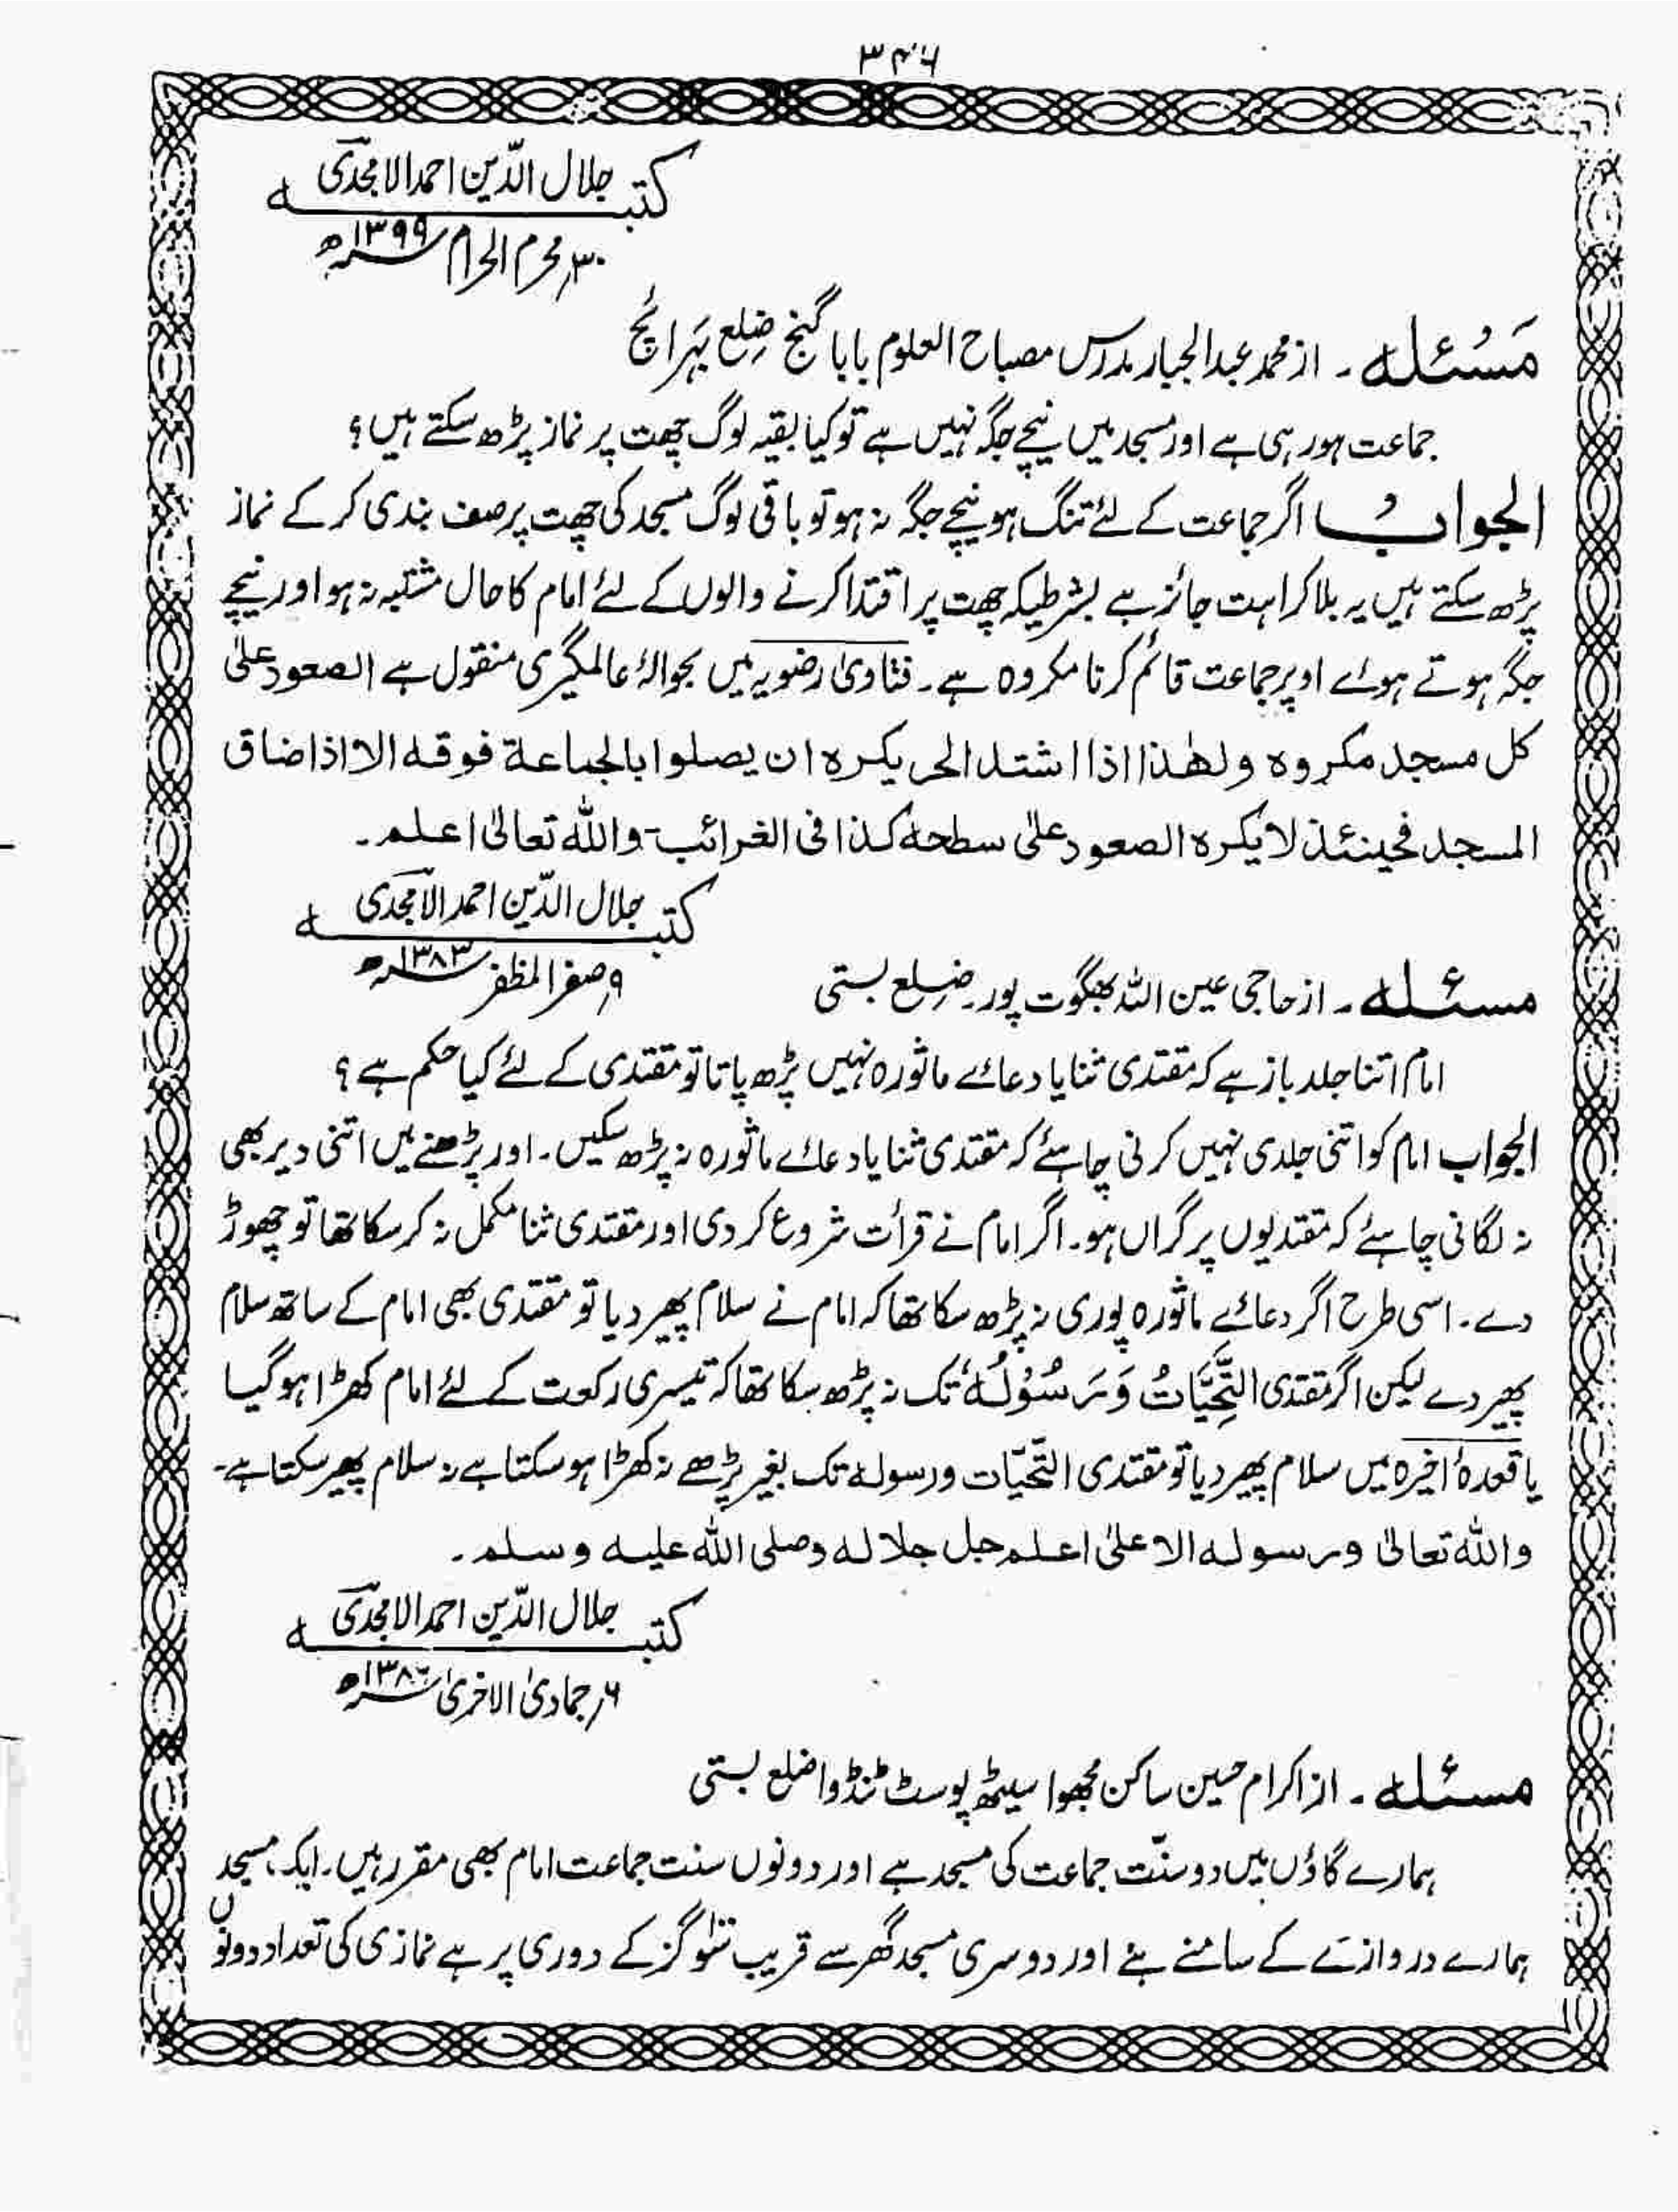 ۳۴۶
کتبہ جلال الدّین احمد الامجدی
۳۰؍ محرم الحرام ۱۳۹۹ھ
مَسُئلہ ۔ از محمد عبدالجبار مدرس مصباح العلوم بابا گنج ضِلع بَہرائچ
جماعت ہورہی ہے اور مسجد میں نیچے جگہ نہیں ہے تو کیا بقیہ لوگ چھت پر نماز پڑھ سکتے ہیں؟
الجوابُ اگر جماعت کے لئے تنگ ہو نیچے جگہ نہ ہو تو باقی لوگ مسجد کی چھت پر صف بندی کر کے نماز
پڑھ سکتے ہیں یہ بلا کراہت جائز ہے بشرطیکہ چھت پر اقتدا کرنے والوں کے لئے امام کا حال مشتبہ نہ ہو اور نیچے
جگہ ہوتے ہوئے اوپر جماعت قائم کرنا مکروہ ہے۔ فتاویٰ رضویہ میں بحوالۂ عالمگیری منقول ہے الصعود علیٰ
کل مسجد مکروہ ولھٰذا اذا اشتد الحر یکرہ ان یصلوا بالجماعة فوقہ الا اذا ضاق
المسجد فحینئذ لا یکرہ الصعود علیٰ سطحہ کذا فی الغرائب۔ واللّٰہ تعالیٰ اعلم۔
کتبہ جلال الدّین احمد الامجدی
۹؍ صفر المظفر ۱۳۸۳ھ
مسئلہ ۔ از حاجی عین اللّٰہ بھگوت پور۔ ضِلع بستی
امام اتنا جلد باز ہے کہ مقتدی ثنا یا دعائے ماثورہ نہیں پڑھ پاتا تو مقتدی کے لئے کیا حکم ہے؟
الجواب امام کو اتنی جلدی نہیں کرنی چاہئے کہ مقتدی ثنا یا دعائے ماثورہ نہ پڑھ سکیں۔ اور پڑھنے میں اتنی دیر بھی
نہ لگانی چاہئے کہ مقتدیوں پر گراں ہو۔ اگر امام نے قرأت شروع کردی اور مقتدی ثنا مکمل نہ کر سکا تھا تو چھوڑ
دے۔ اسی طرح اگر دعائے ماثورہ پوری نہ پڑھ سکا تھا کہ امام نے سلام پھیر دیا تو مقتدی بھی امام کے ساتھ سلام
پھیر دے لیکن اگر مقتدی التَّحِیَّاتُ وَرَسُوْلُہٗ تک نہ پڑھ سکا تھا کہ تیسری رکعت کے لئے امام کھڑا ہوگیا
یا قعدۂ اخیرہ میں سلام پھیر دیا تو مقتدی التَّحیّات ورسولہ تک بغیر پڑھے نہ کھڑا ہو سکتا ہے نہ سلام پھیر سکتا ہے۔
واللّٰہ تعالیٰ ورسولہ الاعلیٰ اعلم جل جلالہ وصلی اللّٰہ علیہ وسلم۔
کتبہ جلال الدّین احمد الامجدی
۶؍ جمادی الاخریٰ
مسئلہ ۔ از اکرام حسین ساکن مجھوا سیٹھ پوسٹ ٹنڈوا ضلع بستی
ہمارے گاؤں میں دو سنّت جماعت کی مسجد ہے اور دونوں سنت جماعت امام بھی مقرر ہیں۔ ایک مسجد
ہمارے دروازے کے سامنے ہے اور دوسری مسجد گھر سے قریب سَو گز کے دوری پر ہے نمازی کی تعداد دونوں